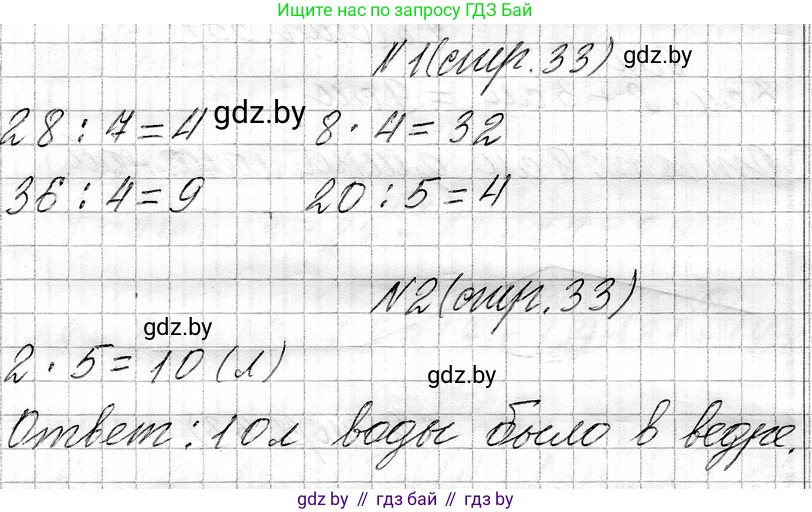 Ищите нас по запросу ГДЗ Бай
N1(стр. 33) gdz.by
28 : 7 = 4 gdz.by 8 · 4 = 32
36 : 4 = 9 20 : 5 = 4
N2(стр. 33)
gdz.by
2 · 5 = 10 (л)
gdz.by
Ответ: 10 л воды было в ведре.
gdz.by // гдз бай // гдз by